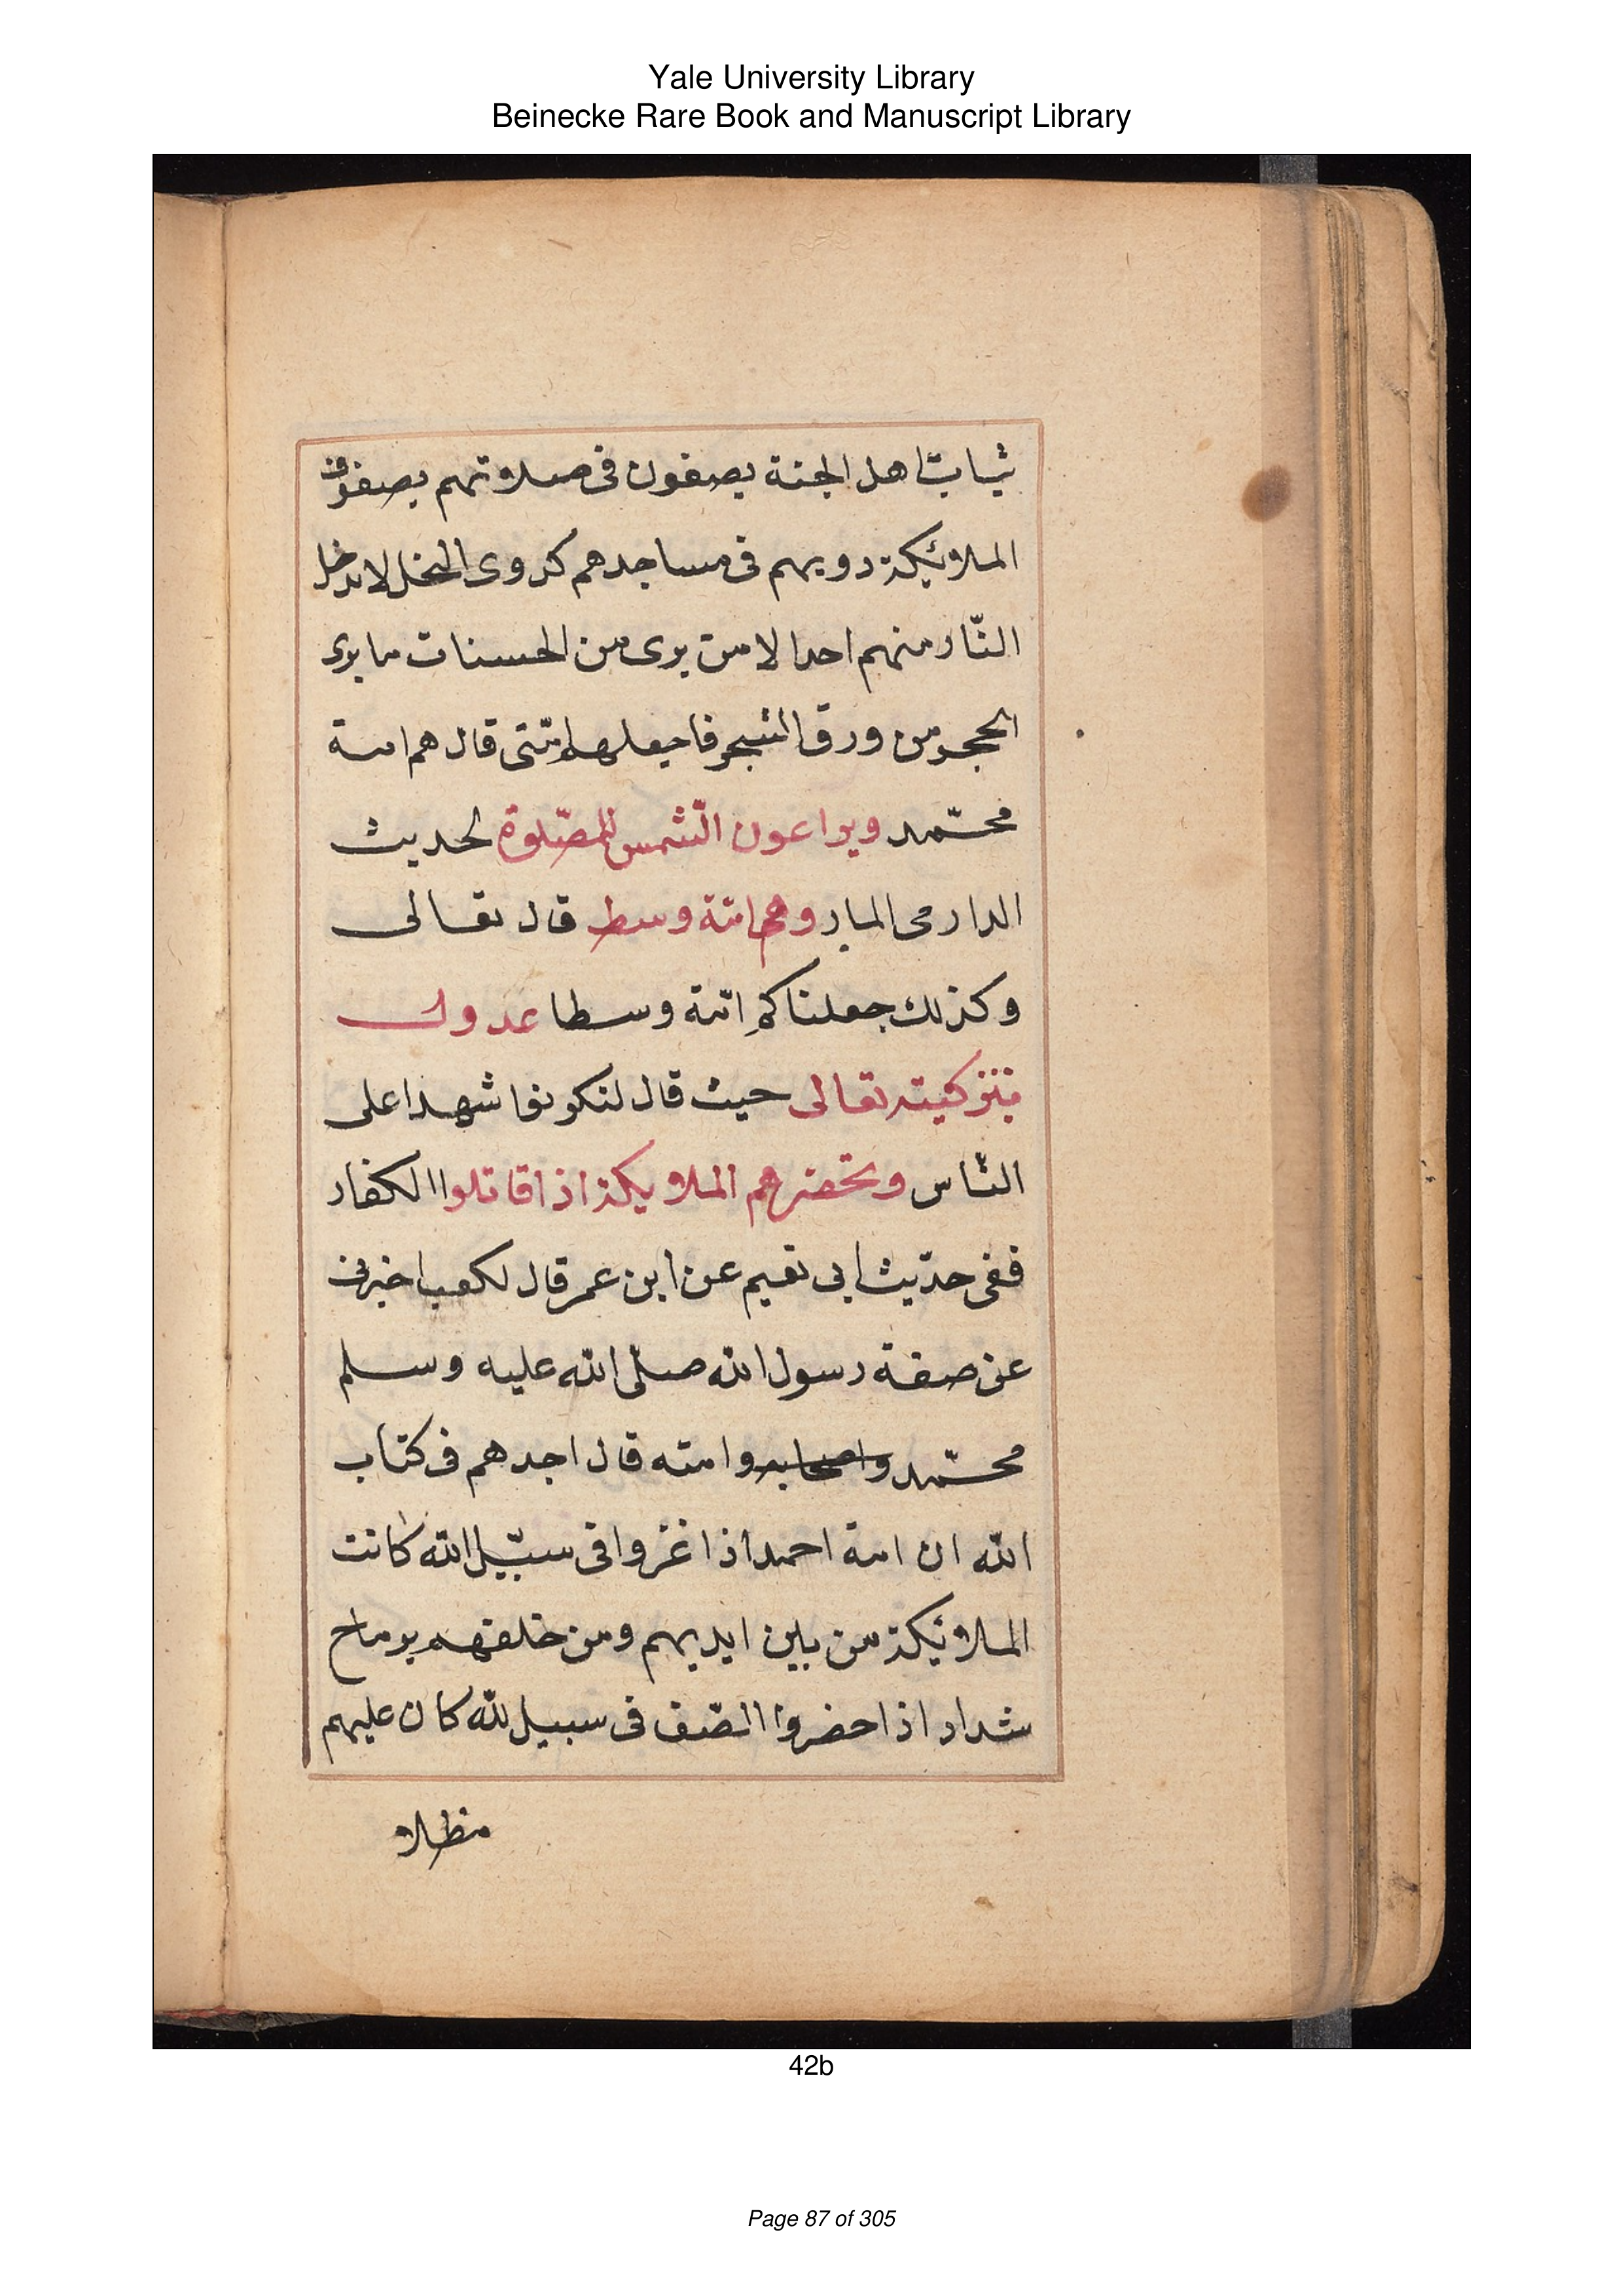 Yale University Library
Beinecke Rare Book and Manuscript Library
ثياب اهل الجنة يصفون فى صلاتهم يصفوف
الملائيكة دويهم فى مساجدهم كدوى النحل لا يدخل
النّار منهم احدا لا من يرى من الحسنات ما يرى
الحجر من ورق الشجر فاجعلها امّتى قال هم امة
محمّد ويراعون الشّمس للصّلوة لحديث
الدارمى المار وهم امّة وسط قال تعالى
وكذلك جعلناكم امّة وسطا عدول
بتزكيته تعالى حيث قال لتكونوا شهدا على
النّاس وتحضرهم الملايكة اذا قاتلوا الكفار
ففى حديث ابى نعيم عن ابن عمر قال لكعب اخبرنى
عن صفة رسول الله صلّى الله عليه وسلم
محمّد واصحابه وامته قال اجدهم فى كتاب
الله ان امة احمد اذا غزوا فى سبيل الله كانت
الملائيكة من بين ايديهم ومن خلفهم برماح
شداد اذا حضروا الصّف فى سبيل لله كان عليهم
مظلا
42b
Page 87 of 305